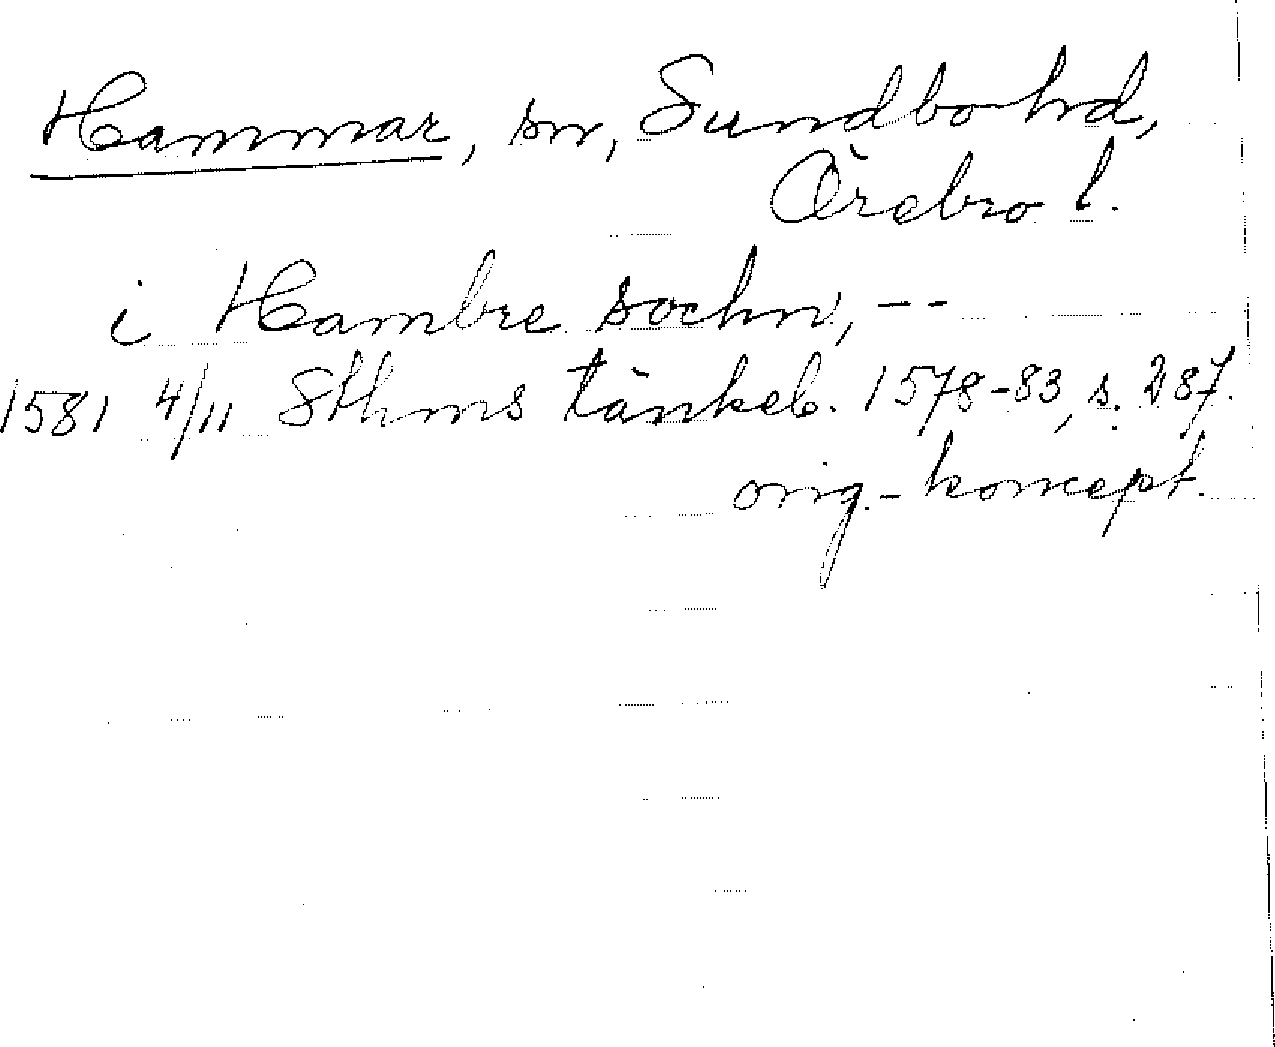 Hammar, sn, Sundbo hd,
Örebro l.
i Hambre sochn, --
1581 4/11 Sthms tänkeb. 1578-83, s. 287.
orig.-koncept.